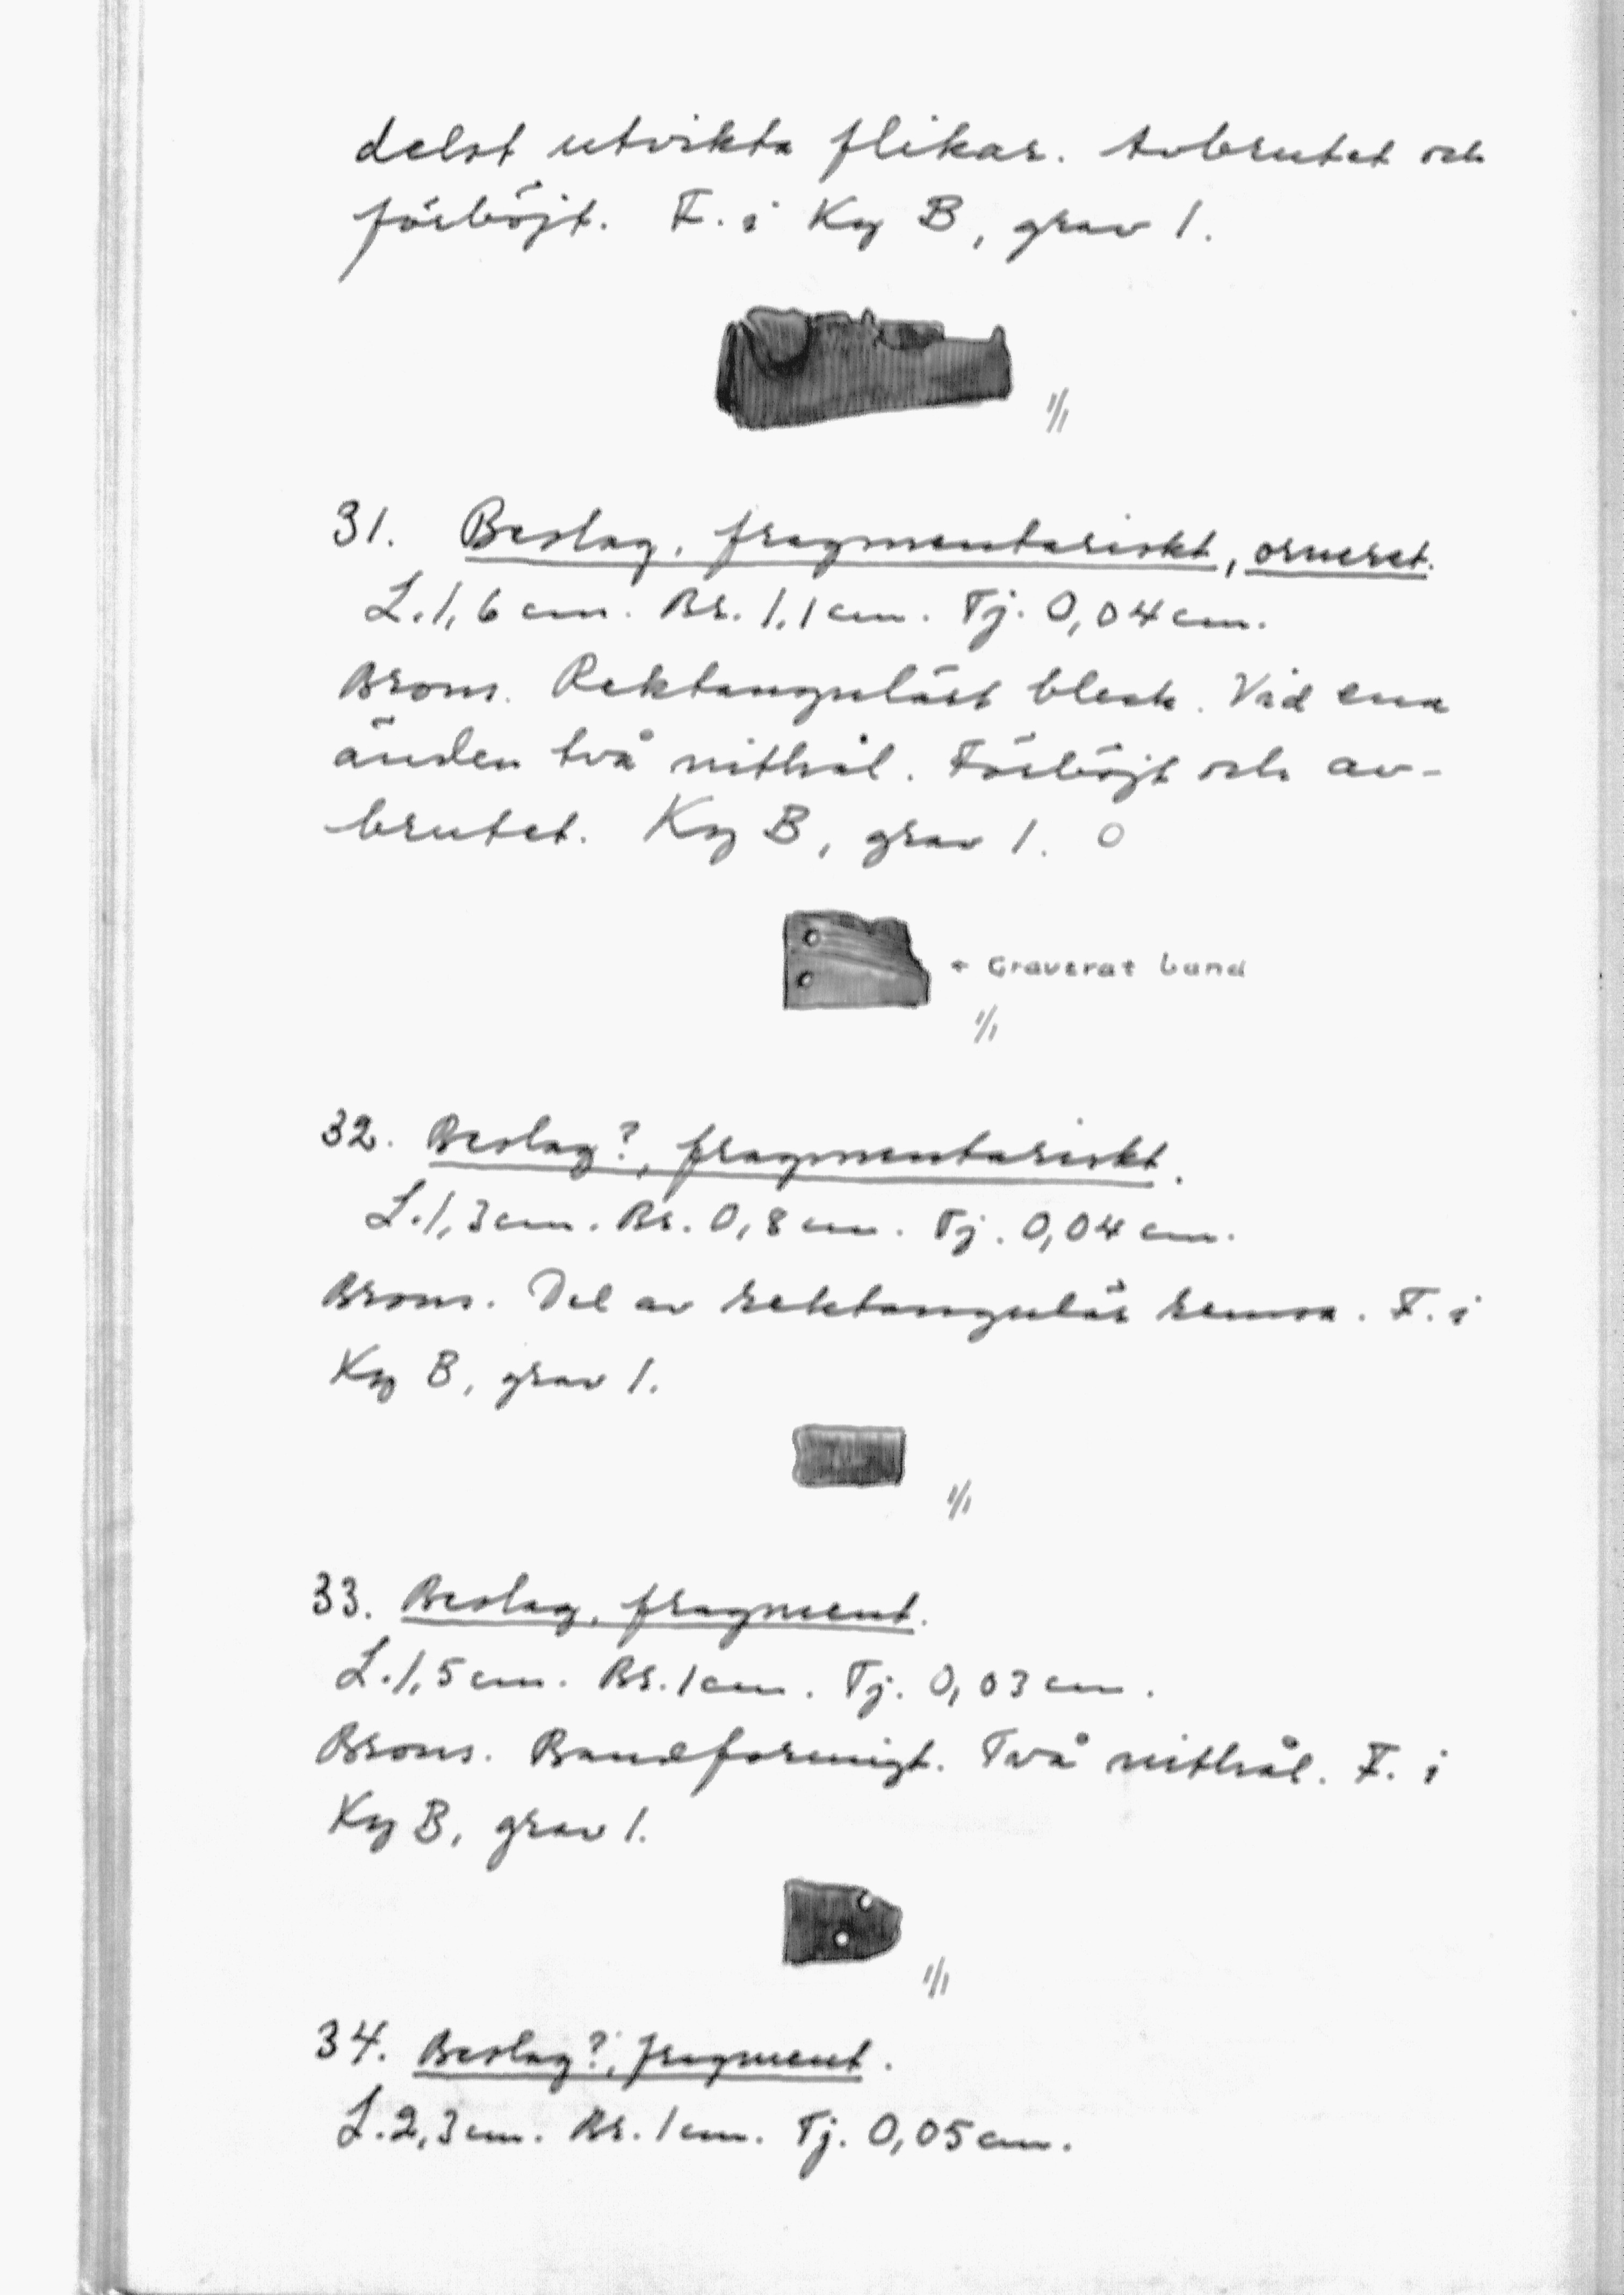 delst utvikta flikar. Avbrutet och
förböjt. F. i Kg B, grav 1.
1/1
31. Beslag, fragmentariskt, ornerat.
L. 1,6 cm. Br. 1,1 cm. Tj. 0,04 cm.
Brons. Rektangulärt bleck. Vid ena
änden två nithål. Förböjt och av-
brutet. Kg B, grav 1. O
← Graverat band
1/1
32. Beslag?, fragmentariskt.
L. 1,3 cm. Br. 0,8 cm. Tj. 0,04 cm.
Brons. Del av rektangulär remsa. F. i
Kg B, grav 1.
1/1
33. Beslag, fragment.
L. 1,5 cm. Br. 1 cm. Tj. 0,03 cm.
Brons. Bandformigt. Två nithål. F. i
Kg B, grav 1.
1/1
34. Beslag?, fragment.
L. 2,3 cm. Br. 1 cm. Tj. 0,05 cm.